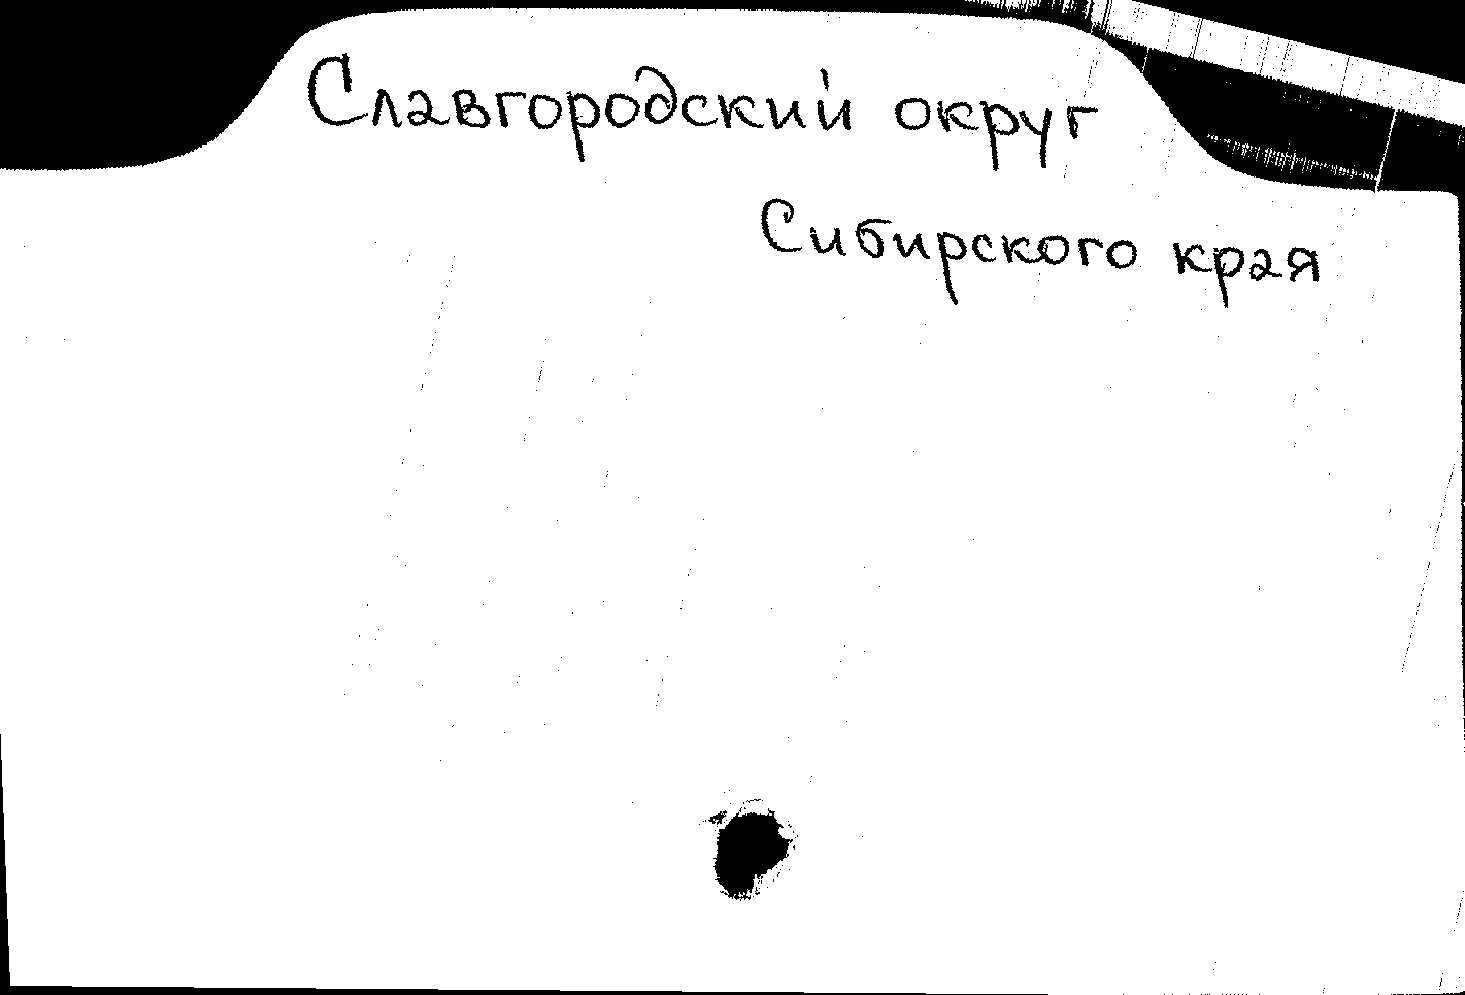 Славгородский округ
Сибирского края